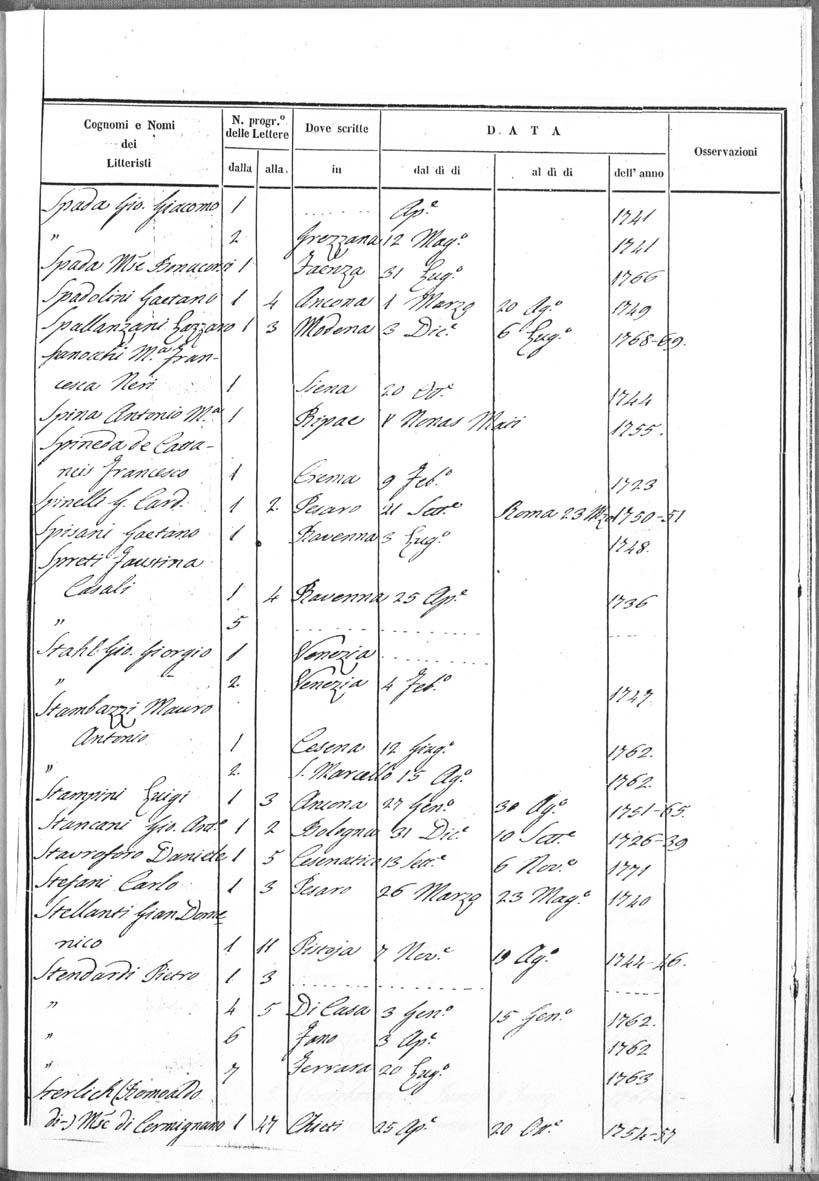 Cognomi e Nomi dei Litteristi | N. progr.º delle Lettere | Dove scritte | DATA | Osservazioni
dalla | alla | in | dal dì di | al dì di | dell' anno
Spada Gio. Giacomo 1 ........ Ap.e 1741
" 2 Grezzana 12 Mag.o 1741
Spada Mse Bonucorsi 1 Faenza 31 Lug.o 1766
Spadolini Gaetano 1 4 Ancona 1 Marzo 20 Ag.o 1749
Spallanzani Lazzaro 1 3 Modena 3 Dic.e 6 Lug.o 1768-69.
Spanocchi M.a Fran-
cesca Neri 1 Siena 20 Ott.e 1744
Spina Antonio M.a 1 Ripae V Nonas Maii 1755.
Spineda de Catta-
neis Francesco 1 Crema 9 Feb.o 1723
Spinelli G. Card. 1 2. Pesaro 21 Sett.e Roma 23 Mzo 1750-51
Spisani Gaetano 1 Ravenna 3 Lug.o 1748.
Spreti Faustina
Casali 1 4 Ravenna 25 Ap.e 1736
" 5 ........ ........ ....
Stahl Gio. Giorgio 1 Venezia ........
" 2. Venezia 4 Feb.o 1747
Stambazzi Mauro
Antonio 1 Cesena 12 Giug.o 1762.
" 2. S. Marcello 15 Ag.o 1762.
Stampini Luigi 1 3 Ancona 27 Gen.o 30 Ag.o 1751-65.
Stancani Gio. Ant.o 1 2 Bologna 31 Dic.e 10 Sett.e 1726-39
Stavroforo Daniele 1 5 Cesenatico 13 Sett.e 6 Nov.e 1771
Stefani Carlo 1 3 Pesaro 26 Marzo 23 Mag.o 1740
Stellanti Gian Dome-
nico 1 11 Pistoja 7 Nov.e 19 Ag.o 1744-46.
Stendardi Pietro 1 3 ........ ........ ....
" 4 5 Di Casa 3 Gen.o 15 Gen.o 1762.
" 6 Fano 3 Ap.e 1762
" 7 Ferrara 20 Lug.o 1763
Sterlich (Romoaldo
di-) Mse di Cermignano 1 47 Chieti 25 Ap.e 20 Ott.e 1754-57